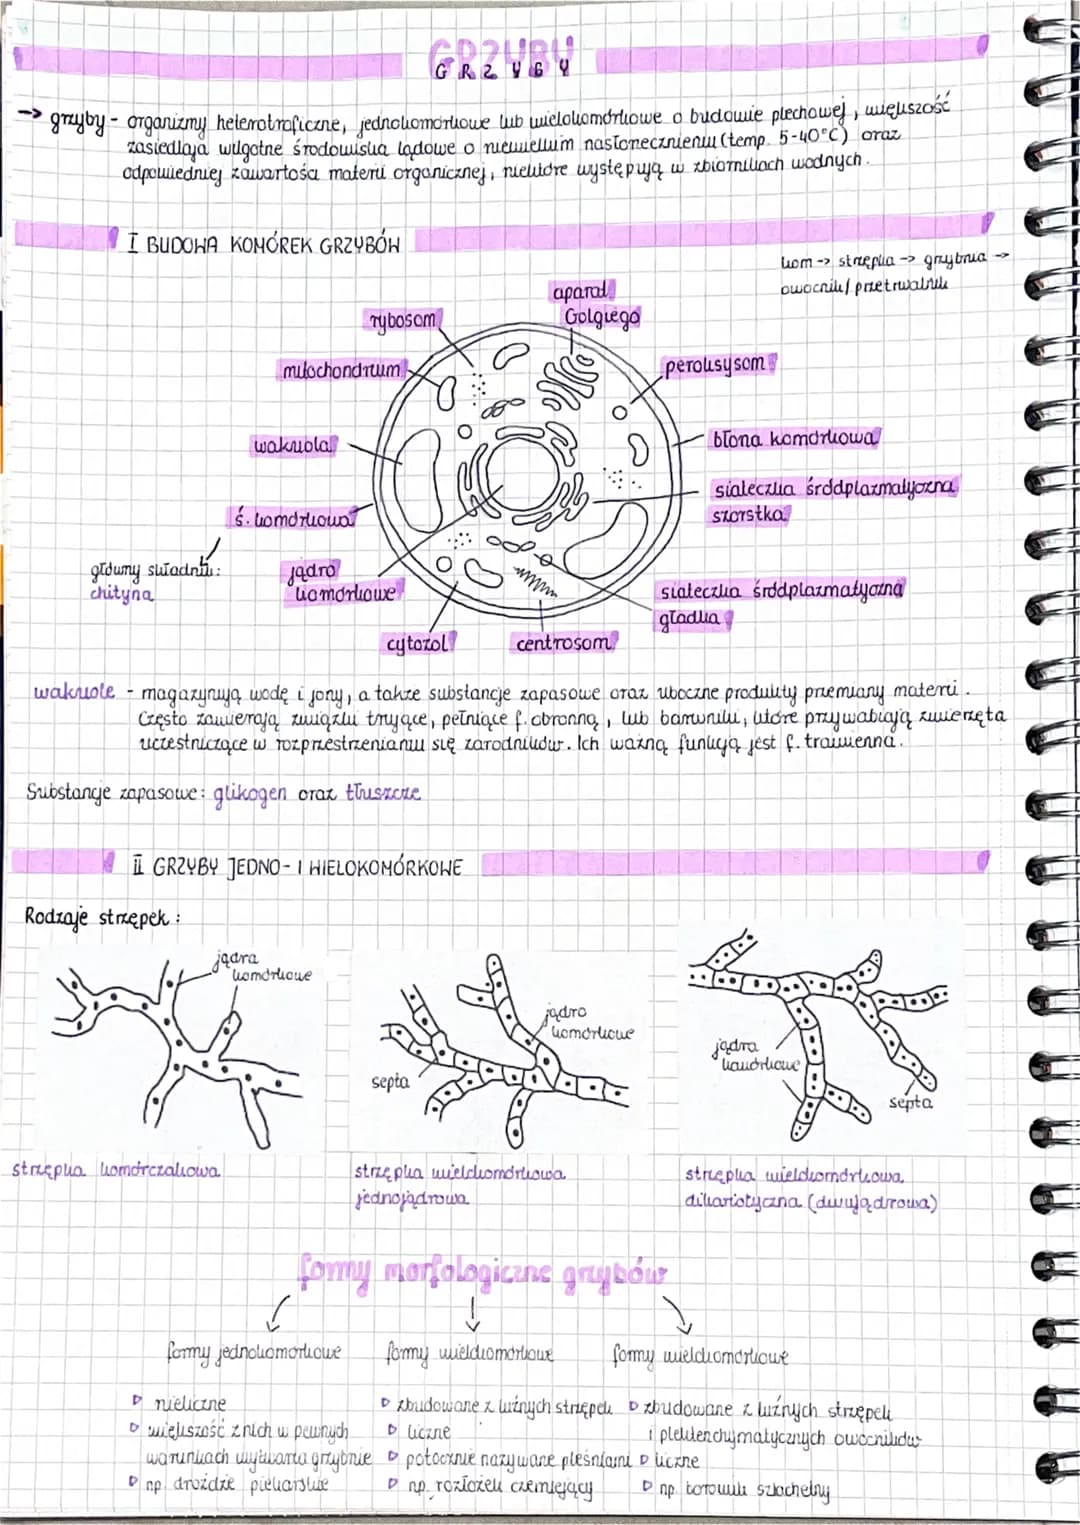 GRZYBY
GRZYBY
-> grzyby - organizmy heterotroficzne, jednokomórkowe lub wielokomórkowe o budowie plechowej, większość
zasiedlają wilgotne środowiska lądowe o niewielkim nasłonecznieniu (temp. 5-40°C) oraz
odpowiedniej zawartości materii organicznej, niektóre występują w zbiornikach wodnych.
I BUDOWA KOMÓREK GRZYBÓW
kom -> strzępka -> grzybnia ->
owocnik/przetrwalnik
aparat
Golgiego
rybosom
mitochondrium
peroksysom
wakuola
błona komórkowa
siateczka śródplazmatyczna
szorstka
ś. komórkowa
główny składnik:
chityna
jądro
komórkowe
siateczka śródplazmatyczna
gładka
cytozol
centrosom
wakuole - magazynują wodę i jony, a także substancje zapasowe oraz uboczne produkty przemiany materii.
Często zawierają związki trujące, pełniące f. obronną, lub barwniki, które przywabiają zwierzęta
uczestniczące w rozprzestrzenianiu się zarodników. Ich ważną funkcją jest f. trawienna.
Substancje zapasowe: glikogen oraz tłuszcze
II GRZYBY JEDNO- I WIELOKOMÓRKOWE
Rodzaje strzępek:
jądra
komórkowe
jądro
komórkowe
septa
jądra
komórkowe
septa
strzępka komórczakowa
strzępka wielokomórkowa
jednojądrowa
strzępka wielokomórkowa
dikariotyczna (dwujądrowa)
formy morfologiczne grzybów
formy jednokomórkowe
formy wielokomórkowe
formy wielokomórkowe
▷ nieliczne
▷ większość z nich w pewnych
warunkach wytwarza grzybnie
▷ np. drożdże piekarskie
▷ zbudowane z luźnych strzępek
▷ liczne
▷ potocznie nazywane pleśniami
▷ np. rozłożek czerniejący
▷ zbudowane z luźnych strzępek
i plektenchymatycznych owocników
▷ liczne
▷ np borowik szlachetny